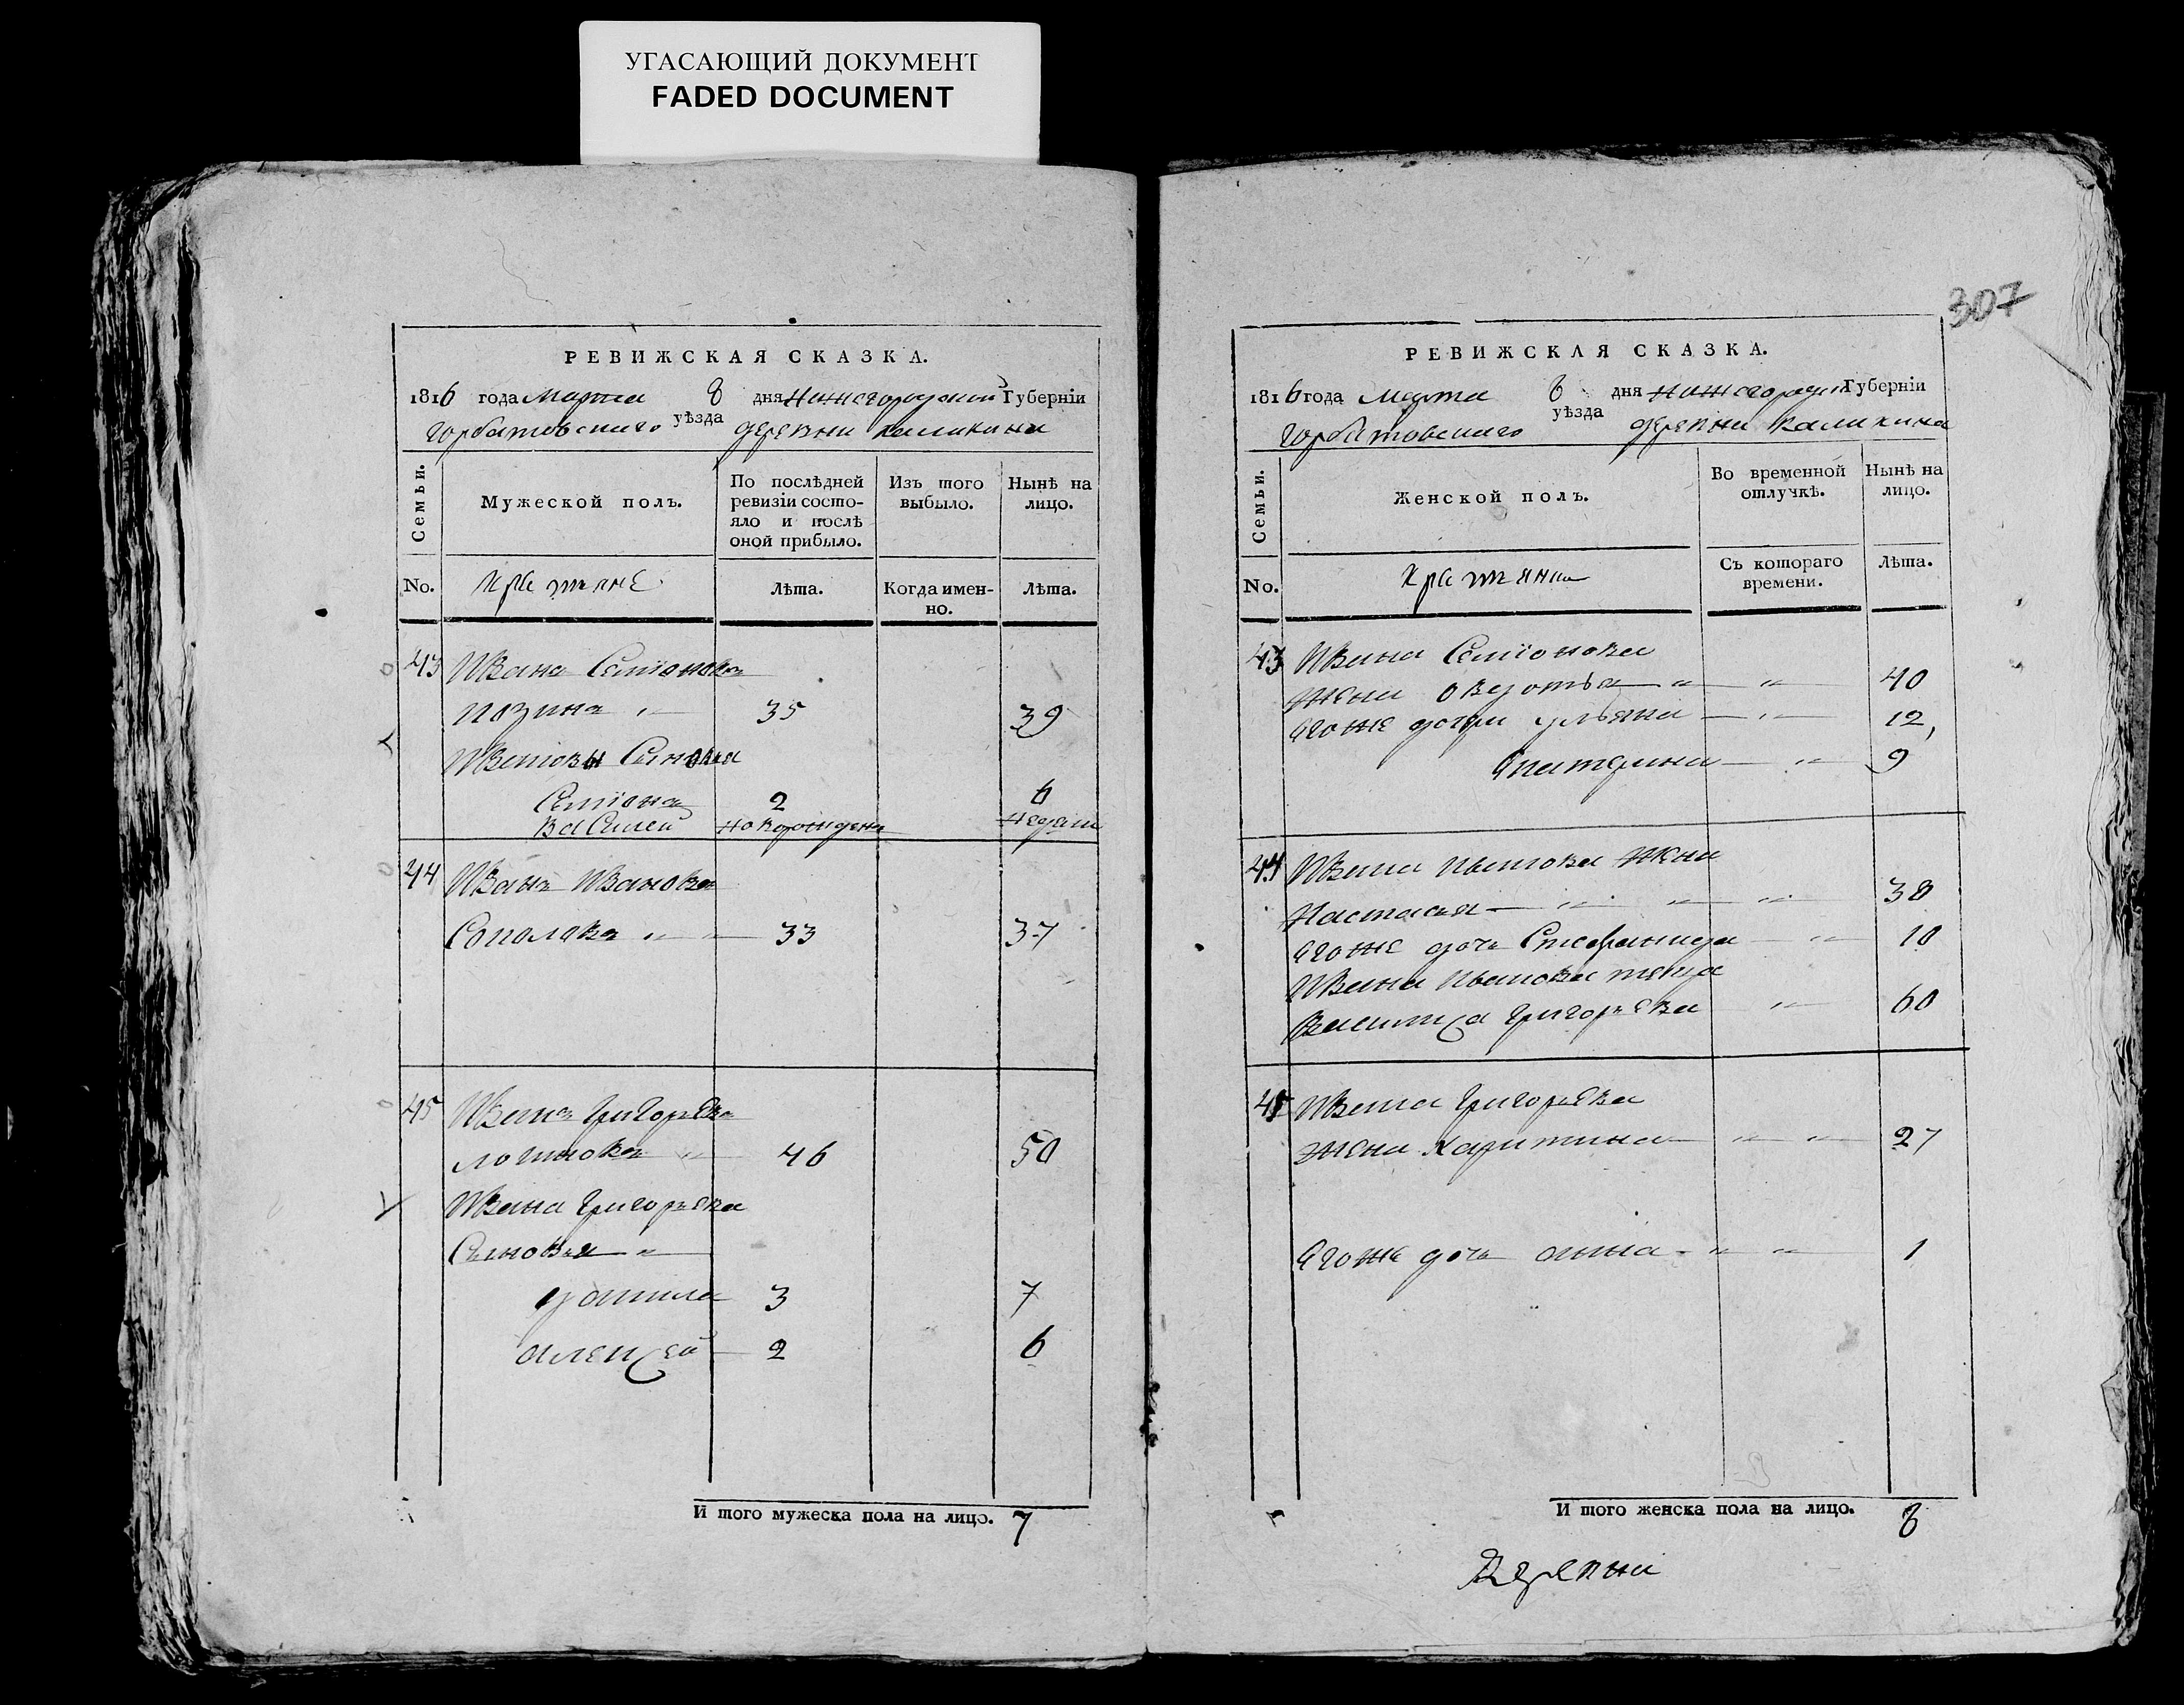 УГАСАЮЩИЙ ДОКУМЕНТ
FADED DOCUMENT
РЕВИЖСКАЯ СКАЗКА.
1816 года Марта 8 дня Нижегородской Губерніи
Горбатовскаго уѣзда деревни Каликина
Семьи.
Мужеской полъ.
По послѣдней ревизіи состо-
яло и послѣ
оной прибыло.
Изъ того
выбыло.
Нынѣ на
лицо.
No.
Крестьяне
Лѣта.
Когда имен-
но.
Лѣта.
43 Иванъ Семіоновъ
35 39
Ивановы Сыновья
Семіонъ 2 6
Василей новорожденъ недели
44 Иванъ Ивановъ
33 37
45 Иванъ Григорьевъ
46 50
Ивана Григорьева
Сыновья
3 7
Алексей 2 6
И того мужеска пола на лицо. 7
307
РЕВИЖСКАЯ СКАЗКА.
1816 года Марта 8 дня Нижегородской Губерніи
Горбатовскаго уѣзда деревни Каликина
Семьи.
Женской полъ.
Во временной
отлучкѣ.
Нынѣ на
лицо.
No.
Крестьянки
Съ котораго
времени.
Лѣта.
43 Ивана Семіонова
жена Овдотья 40
Его же дочери Ульяна 12
Екатерина 9
44 Ивана Иванова жена
Настасья 38
Его же дочь Степанида 10
Ивана Иванова теща
Василиса Григорьева 60
45 Ивана Григорьева
жена Харитина 27
Его же дочь Анна 1
И того женска пола на лицо. 8